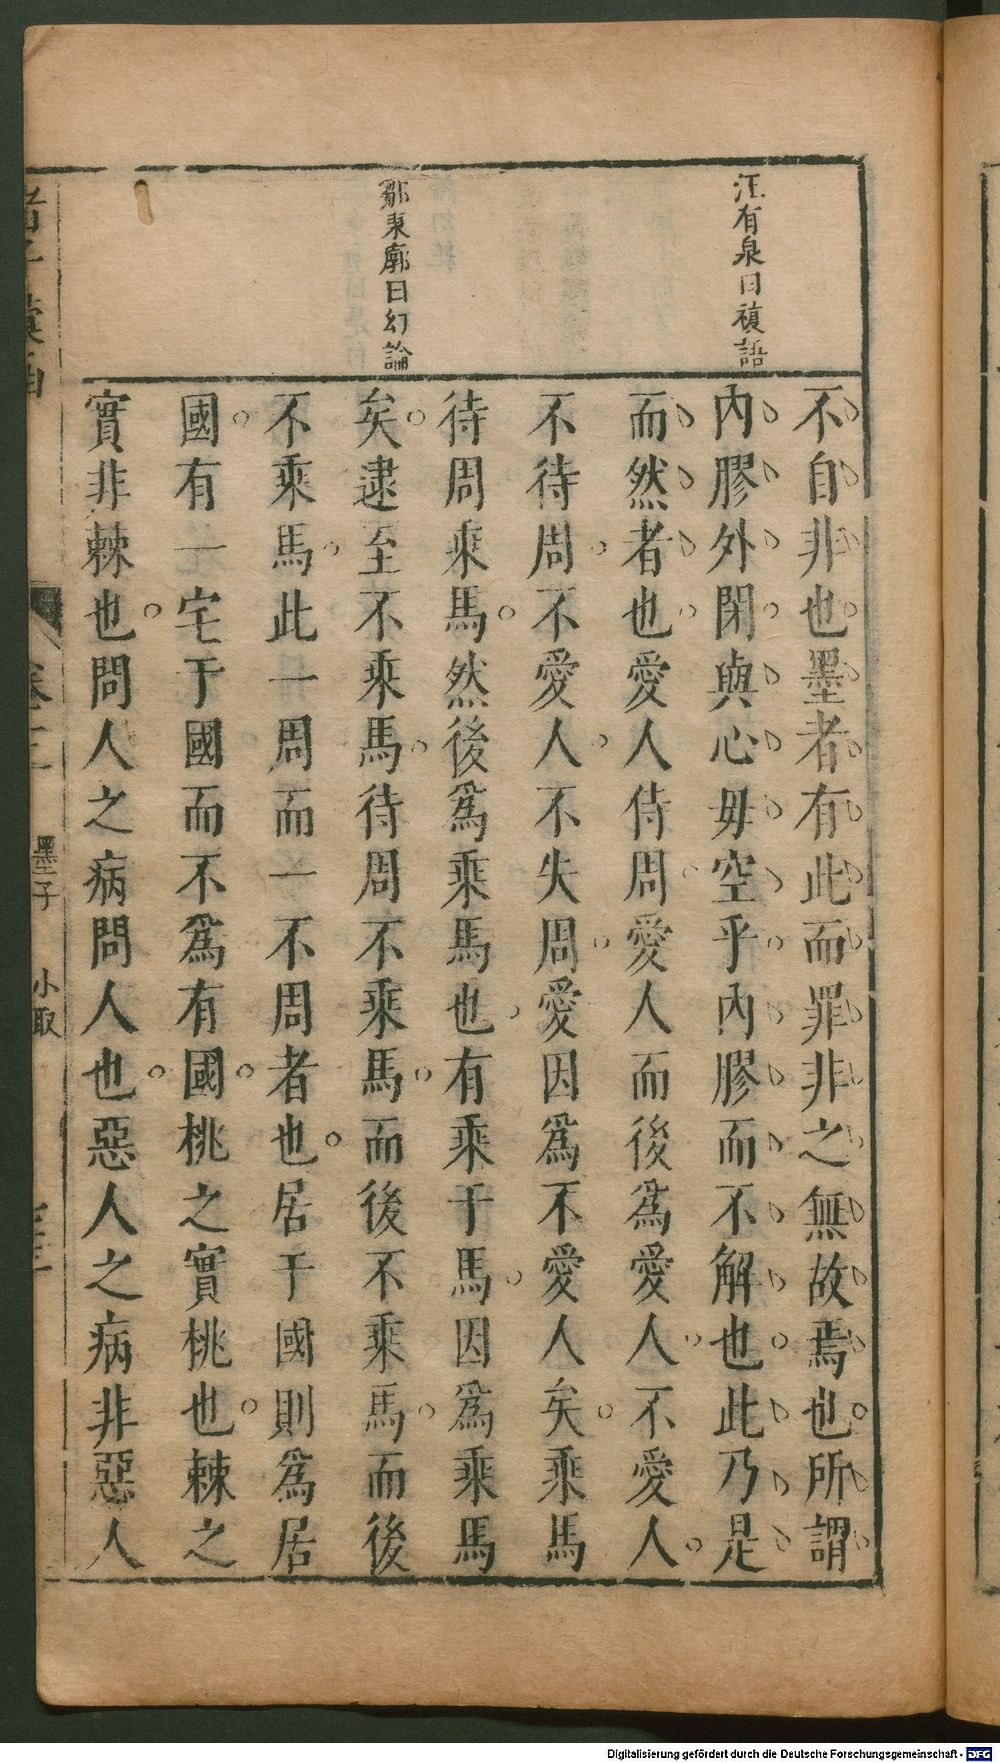 汪有泉曰複語
鄒東廓曰幻論
不自非也墨者有此而罪非之無故焉也所謂
內膠外閉與心毋空乎內膠而不解也此乃是
而然者也愛人侍周愛人而後為愛人不愛人
不待周不愛人不失周愛因為不愛人矣乘馬
待周乘馬然後為乘馬也有乘于馬因為乘馬
矣逮至不乘馬待周不乘馬而後不乘馬而後
不乘馬此一周而一不周者也居于國則為居
國有一宅于國而不為有國桃之實桃也棘之
實非棘也問人之病問人也惡人之病非惡人
墨子 小取
Digitalisierung gefördert durch die Deutsche Forschungsgemeinschaft - DFG